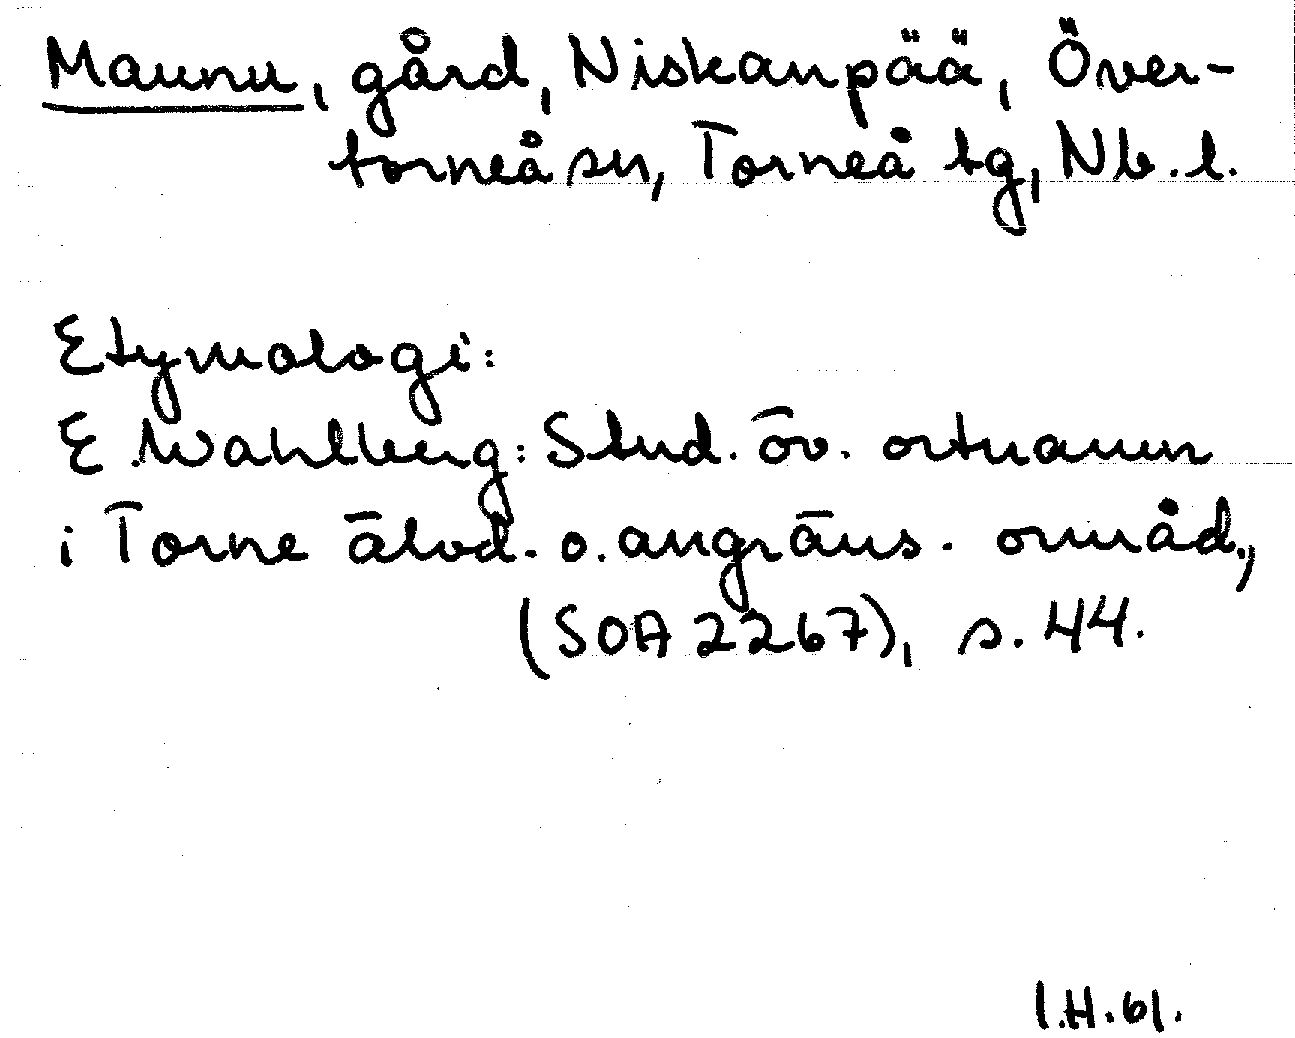 Maunu, gård, Niskanpää, Över-
torneå sn, Torneå tg, Nb.l.
Etymologi:
E. Wahlberg: Stud. öv. ortnamn
i Torne älvd. o. angräns. områd.,
(SOA 2267), s. 44.
I.H. 61.